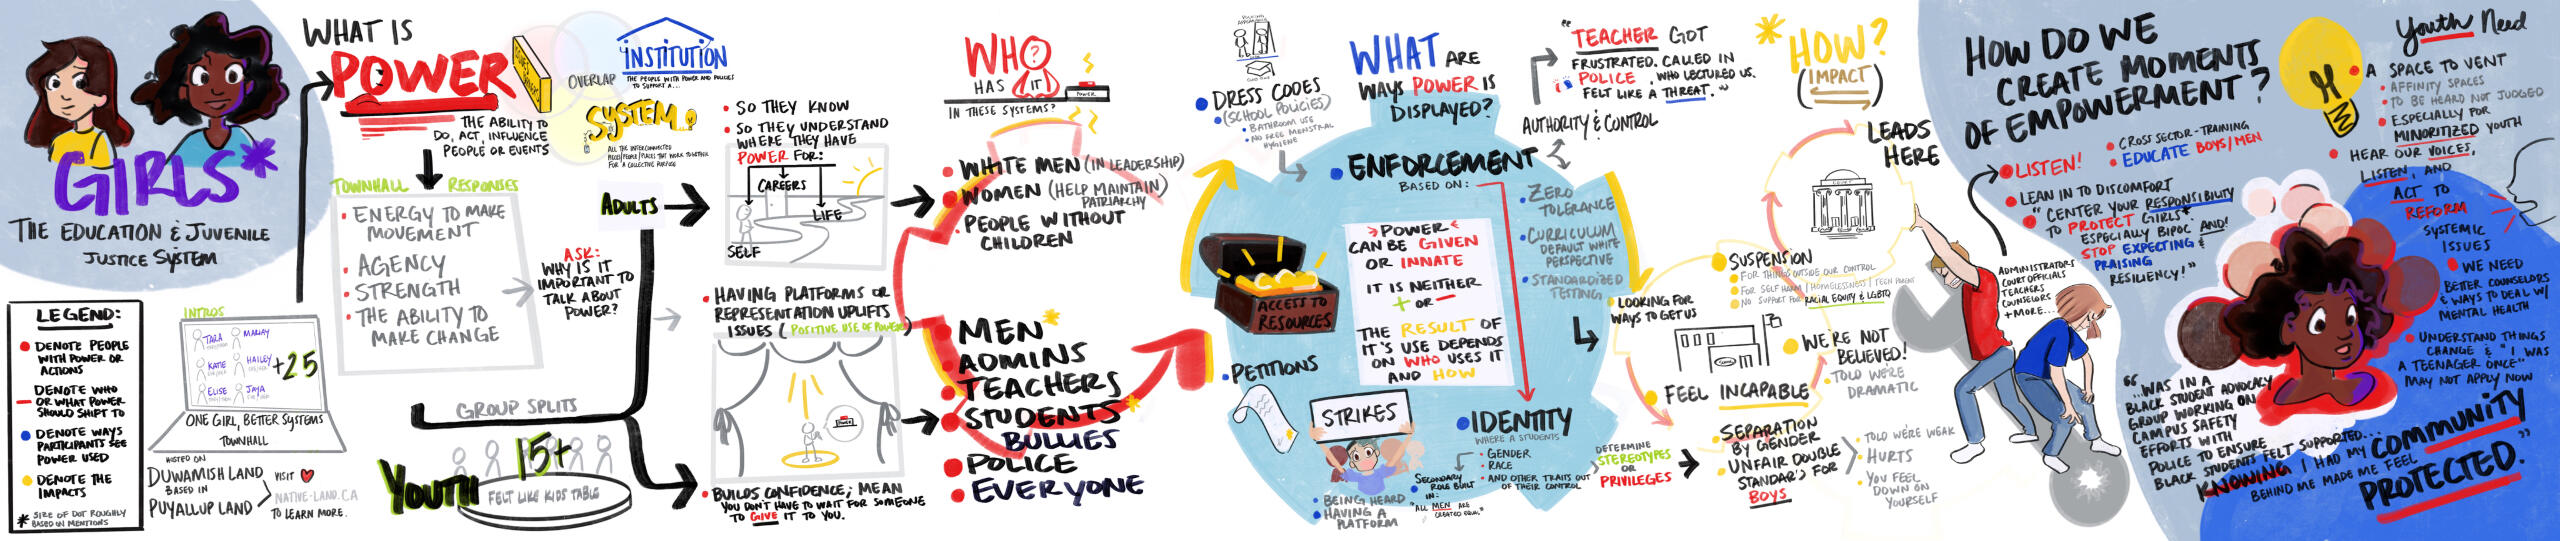 GIRLS*
THE EDUCATION & JUVENILE
JUSTICE SYSTEM
LEGEND:
DENOTE PEOPLE
WITH POWER OR
ACTIONS
DENOTE WHO
OR WHAT POWER
SHOULD SHIFT TO
DENOTE WAYS
PARTICIPANTS SEE
POWER USED
DENOTE THE
IMPACTS
* SIZE OF DOT ROUGHLY
BASED ON MENTIONS
INTROS
TARA
MARJAY
KATIE
HAILEY
ELISE
JAYA
+25
ONE GIRL, BETTER SYSTEMS
TOWNHALL
HOSTED ON
DUWAMISH LAND
BASED IN
PUYALLUP LAND
VISIT
NATIVE-LAND.CA
TO LEARN MORE.
WHAT IS
POWER
THE ABILITY TO
DO, ACT, INFLUENCE
PEOPLE OR EVENTS
OVERLAP
INSTITUTION
THE PEOPLE WITH POWER AND POLICIES
TO SUPPORT A...
SYSTEM
ALL THE INTERCONNECTED
PIECES/PEOPLE/PLACES THAT WORK TOGETHER
FOR A COLLECTIVE PURPOSE
TOWNHALL RESPONSES
ENERGY TO MAKE
MOVEMENT
AGENCY
STRENGTH
THE ABILITY TO
MAKE CHANGE
ASK:
WHY IS IT
IMPORTANT TO
TALK ABOUT
POWER?
ADULTS
GROUP SPLITS
YOUTH
15+
FELT LIKE KIDS TABLE
SO THEY KNOW
SO THEY UNDERSTAND
WHERE THEY HAVE
POWER FOR:
CAREERS
LIFE
SELF
HAVING PLATFORMS OR
REPRESENTATION UPLIFTS
ISSUES (POSITIVE USE OF POWER)
POWER
BUILDS CONFIDENCE; MEAN
YOU DON'T HAVE TO WAIT FOR SOMEONE
TO GIVE IT TO YOU.
WHO?
HAS IT
IN THESE SYSTEMS?
POWER
WHITE MEN (IN LEADERSHIP)
WOMEN (HELP MAINTAIN
PATRIARCHY)
PEOPLE WITHOUT
CHILDREN
MEN*
ADMINS
TEACHERS
STUDENTS*
BULLIES
POLICE
EVERYONE
DRESS CODES
(SCHOOL POLICIES)
BATHROOM USE
NO FREE MENSTRAL
HYGIENE
WHAT ARE
WAYS POWER IS
DISPLAYED?
ENFORCEMENT
BASED ON:
ACCESS TO
RESOURCES
POWER
CAN BE GIVEN
OR INNATE
IT IS NEITHER
+ OR -
THE RESULT OF
IT'S USE DEPENDS
ON WHO USES IT
AND HOW
PETITIONS
STRIKES
BEING HEARD
HAVING A
PLATFORM
IDENTITY
WHERE A STUDENTS
GENDER
RACE
AND OTHER TRAITS OUT
OF THEIR CONTROL
SECONDARY
ROLE BUILT
IN:
"ALL MEN ARE
CREATED EQUAL"
"TEACHER GOT
FRUSTRATED. CALLED IN
POLICE, WHO LECTURED US.
FELT LIKE A THREAT."
AUTHORITY & CONTROL
ZERO
TOLERANCE
CURRICULUM
DEFAULT WHITE
PERSPECTIVE
STANDARDIZED
TESTING
DETERMINE
STEREOTYPES
OR
PRIVILEGES
*HOW?
(IMPACT)
LEADS
HERE
SUSPENSION
FOR THINGS OUTSIDE OUR CONTROL
FOR SELF HARM/HOMELESSNESS/TEEN PARENT
NO SUPPORT FOR RACIAL EQUITY & LGBTQ
LOOKING FOR
WAYS TO GET US
WE'RE NOT
BELIEVED!
TOLD WE'RE
DRAMATIC
FEEL INCAPABLE
SEPARATION
BY GENDER
UNFAIR DOUBLE
STANDAR'S FOR
BOYS
TOLD WE'RE WEAK
HURTS
YOU FEEL
DOWN ON
YOURSELF
HOW DO WE
CREATE MOMENTS
OF EMPOWERMENT?
LISTEN!
CROSS SECTOR-TRAINING
EDUCATE BOYS/MEN
LEAN IN TO DISCOMFORT
"CENTER YOUR RESPONSIBILITY
TO PROTECT GIRLS*
ESPECIALLY BIPOC AND!
STOP EXPECTING &
PRAISING
RESILIENCY!"
ADMINISTRATORS
COURT OFFICIALS
TEACHERS
COUNSELORS
+MORE...
Youth Need
A SPACE TO VENT
AFFINITY SPACES
TO BE HEARD NOT JUDGED
ESPECIALLY FOR
MINORITIZED YOUTH
HEAR OUR VOICES,
LISTEN, AND
ACT TO
REFORM
SYSTEMIC
ISSUES
WE NEED
BETTER COUNSELORS
& WAYS TO DEAL W/
MENTAL HEALTH
UNDERSTAND THINGS
CHANGE & "I WAS
A TEENAGER ONCE"
MAY NOT APPLY NOW
"...WAS IN A
BLACK STUDENT ADVOCACY
GROUP WORKING ON
CAMPUS SAFETY
EFFORTS WITH
POLICE TO ENSURE
BLACK STUDENTS FELT SUPPORTED...
KNOWING I HAD MY COMMUNITY
BEHIND ME MADE ME FEEL
PROTECTED."